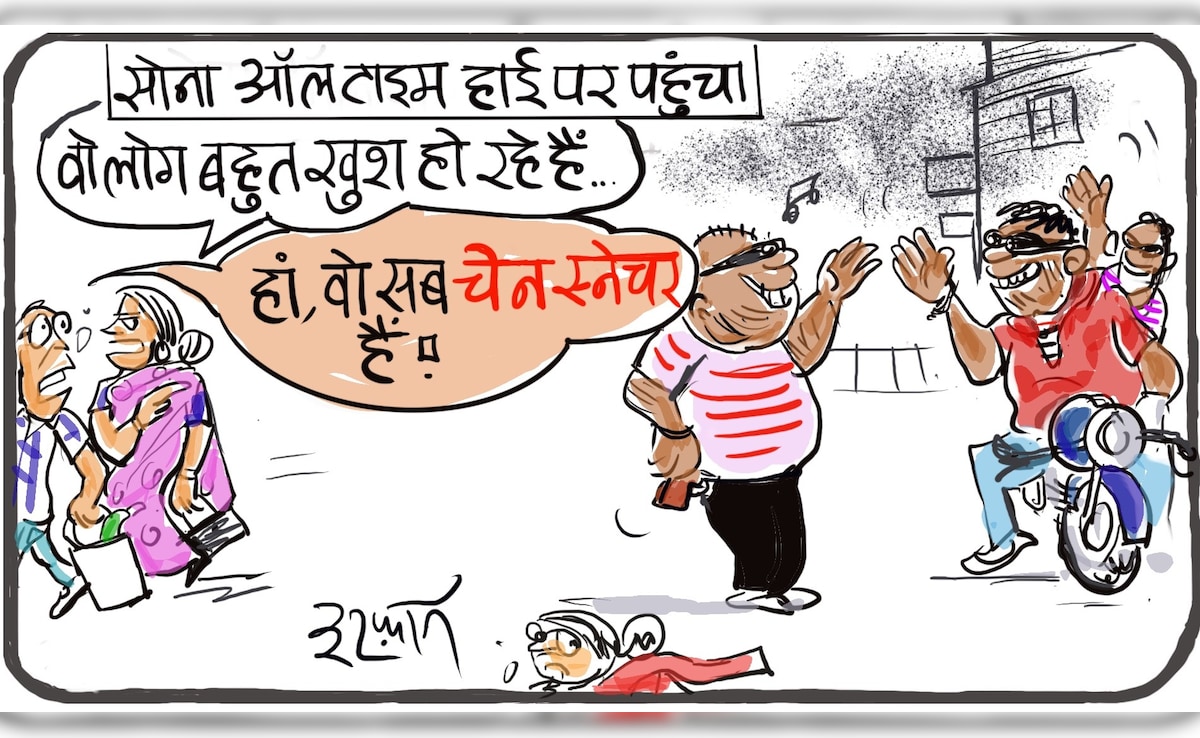 सोना ऑल टाइम हाई पर पहुंचा
वो लोग बहुत खुश हो रहे हैं...
हां, वो सब चेन स्नेचर
हैं!
इरफ़ान